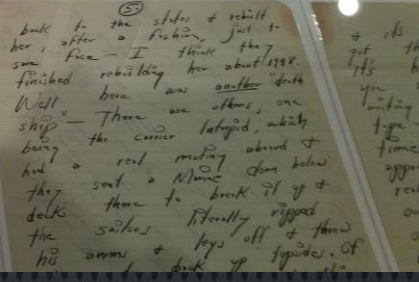 5
back to the states & rebuilt
her, after a fashion, just to
save face — I think they
finished rebuilding her about 1948.
Well here was another "death
ship" — There are others, one
being the carrier Intrepid, which
had a real mutiny aboard &
they sent a Marine down below
deck there to break it up &
the sailors literally ripped
his arms & legs off & threw
back up topsides. Of
& its
got th
it's h
you
writing
type
time
appea
real